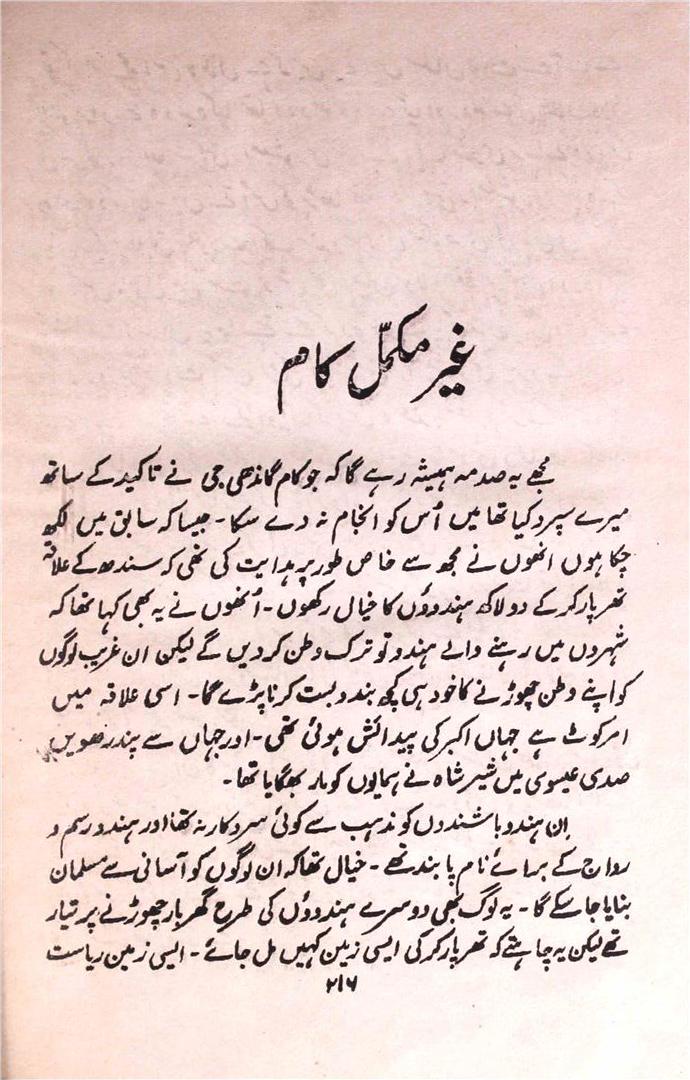 غیر مکمّل کام
مجھے یہ صدمہ ہمیشہ رہے گا کہ جو کام گاندھی جی نے تاکید کے ساتھ
میرے سپرد کیا تھا میں اُس کو انجام نہ دے سکا۔ جیسا کہ سابق میں لکھ
چکا ہوں انھوں نے مجھ سے خاص طور پر ہدایت کی تھی کہ سندھ کے علاقہ
تھر پارکر کے دو لاکھ ہندوؤں کا خیال رکھوں۔ اُنھوں نے یہ بھی کہا تھا کہ
شہروں میں رہنے والے ہندو تو ترک وطن کر دیں گے لیکن ان غریب لوگوں
کو اپنے وطن چھوڑنے کا خود ہی کچھ بندوبست کرنا پڑے گا۔ اسی علاقہ میں
امر کوٹ ہے جہاں اکبر کی پیدائش ہوئی تھی۔ اور جہاں سے پندرھویں
صدی عیسوی میں شیر شاہ نے ہمایوں کو مار بھگایا تھا۔
ان ہندو باشندوں کو مذہب سے کوئی سروکار نہ تھا اور ہندو رسم و
رواج کے برائے نام پابند تھے۔ خیال تھا کہ ان لوگوں کو آسانی سے مسلمان
بنایا جا سکے گا۔ یہ لوگ بھی دوسرے ہندوؤں کی طرح گھر بار چھوڑنے پر تیار
تھے لیکن یہ چاہتے کہ تھر پارکر کی ایسی زمین کہیں مل جائے۔ ایسی زمین ریاست
۲۱۶